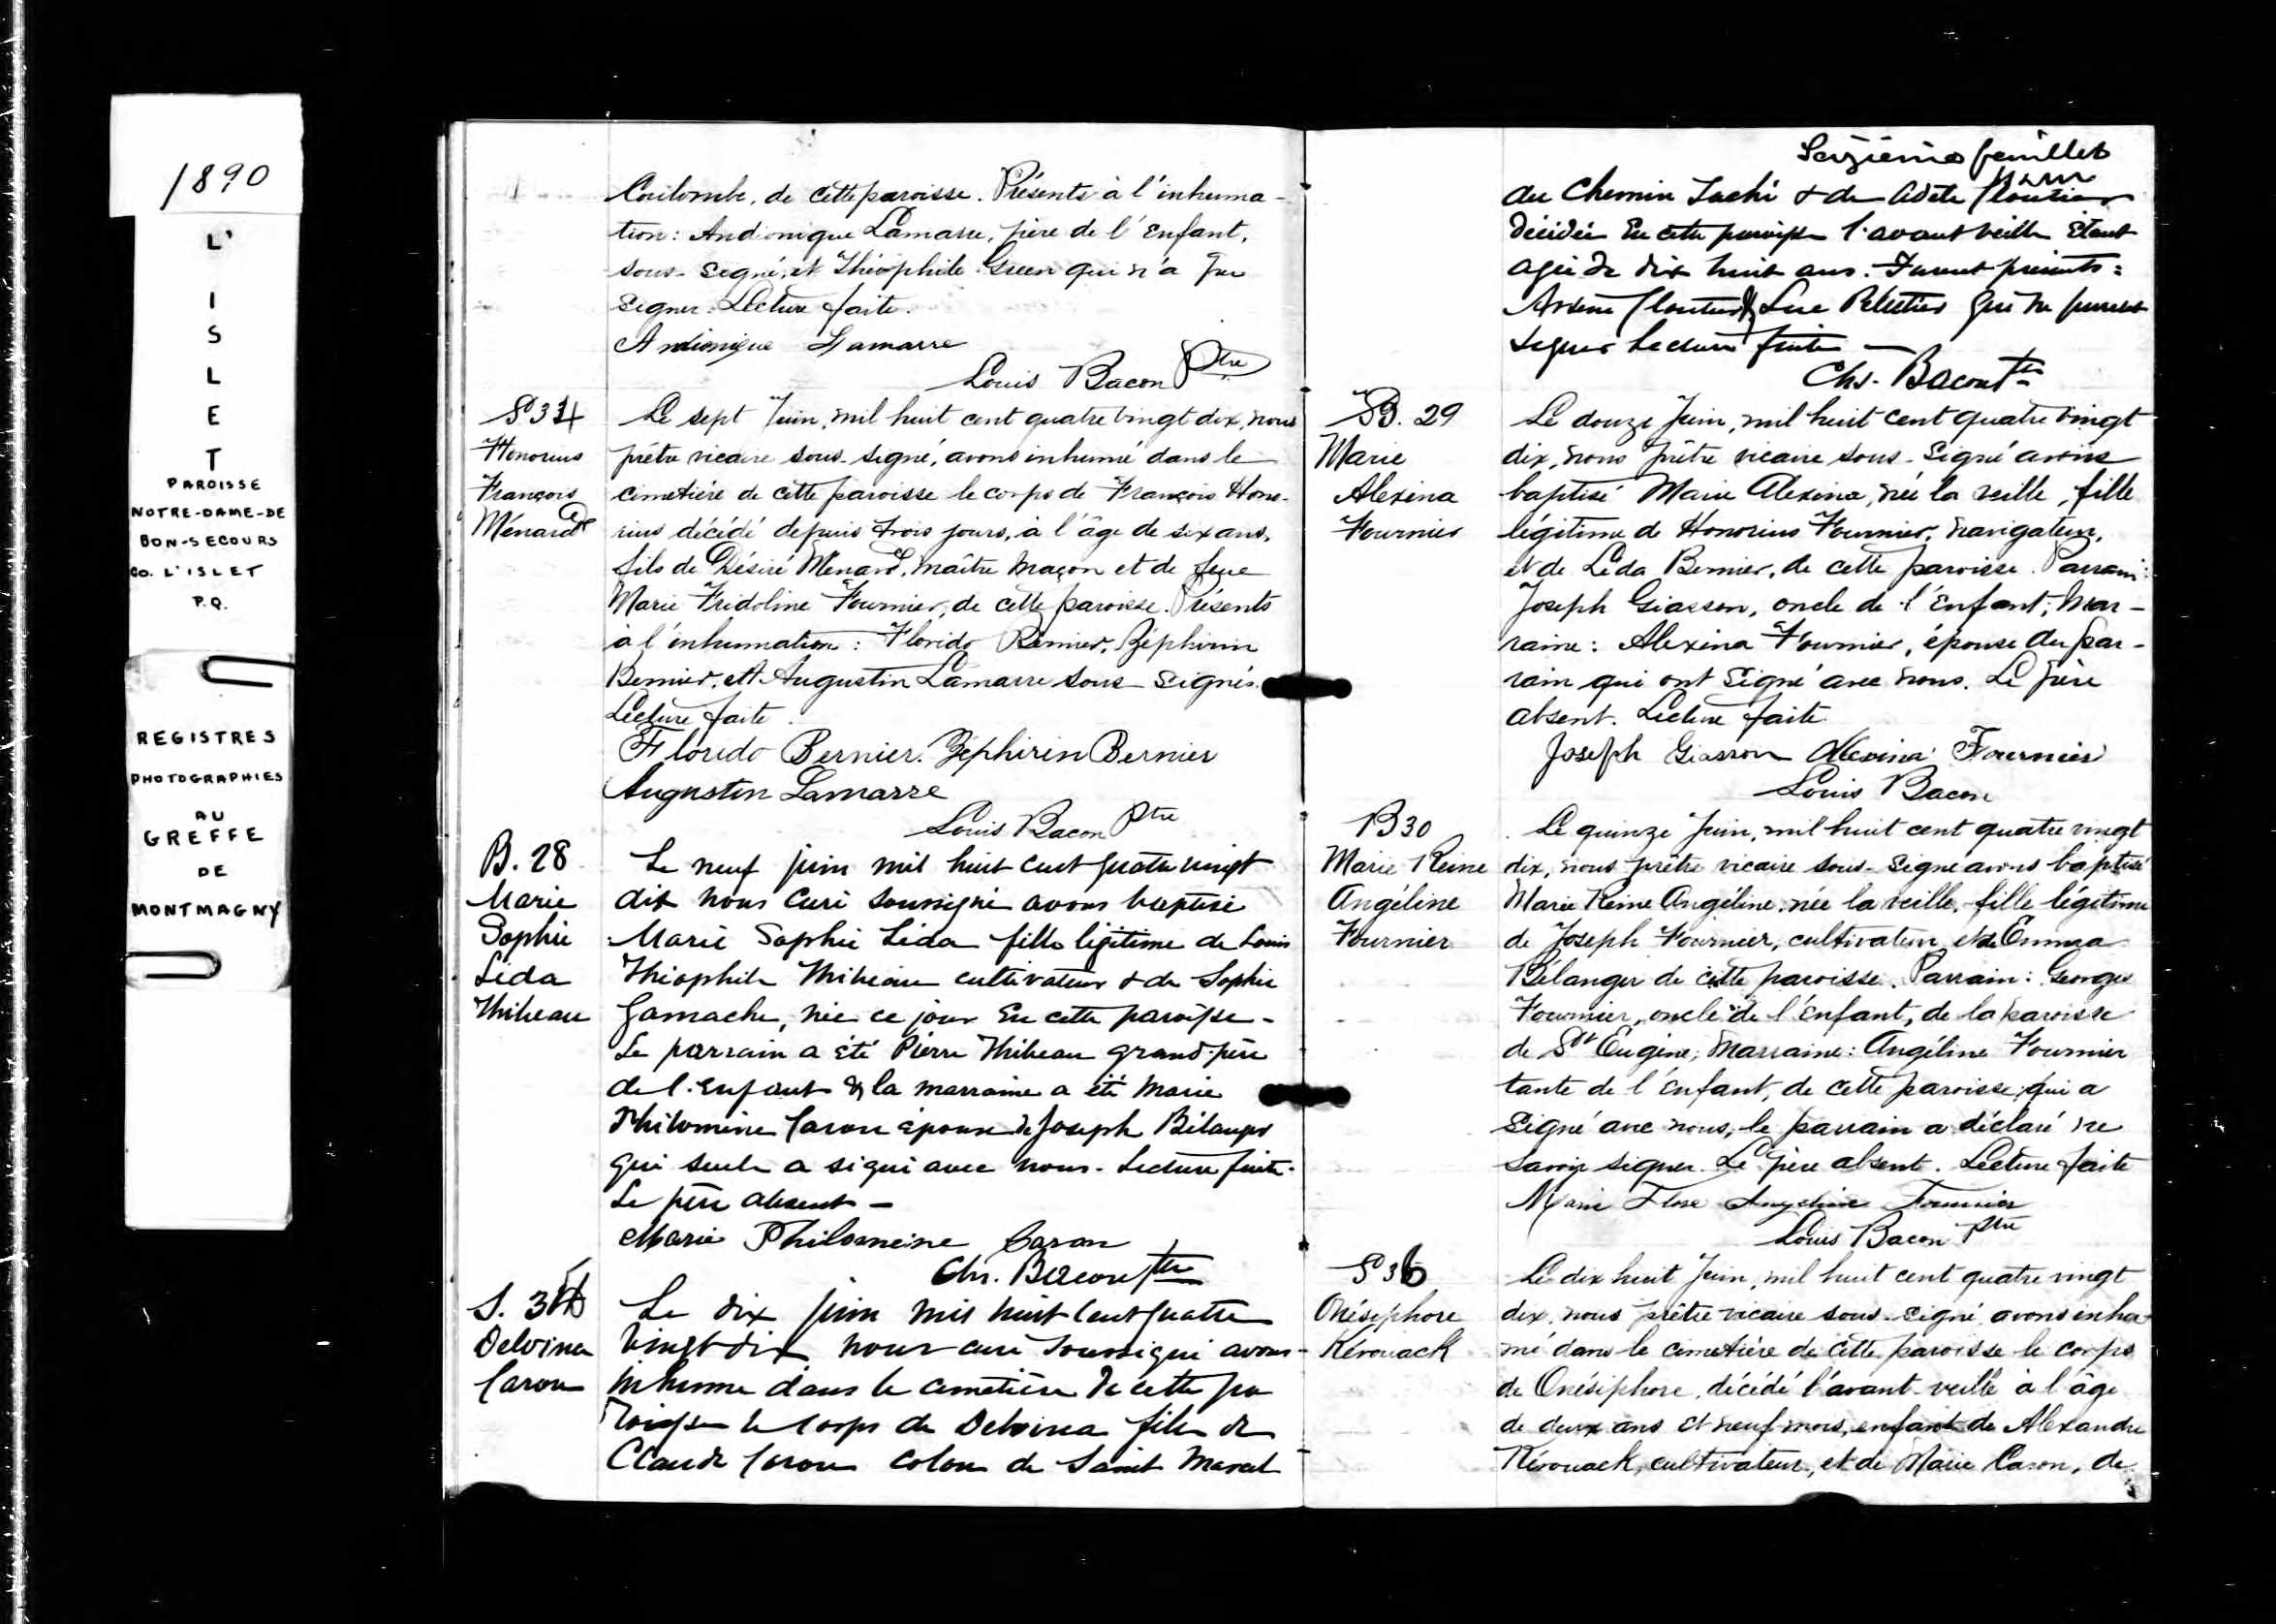 1890
L'
I
S
L
E
T
PAROISSE
NOTRE-DAME-DE
BON-SECOURS
CO. L'ISLET
P.Q.
REGISTRES
PHOTOGRAPHIES
AU
GREFFE
DE
MONTMAGNY
Coulombe, de cette paroisse. Présents à l'inhuma-
tion: Andronique Lamarre, père de l'Enfant,
sous-signé, et Théophile Green qui n'a pu
signer. Lecture faite.
Andronique Lamarre
Louis Bacon Ptre
S 34
Honorius
François
Ménard
Le sept Juin, mil huit cent quatre vingt dix, nous
prêtre vicaire sous-signé, avons inhumé dans le
cimetière de cette paroisse le corps de François Hono-
rius décédé depuis trois jours, à l'âge de six ans,
fils de Désiré Ménard, maître maçon et de feue
Marie Fridoline Fournier, de cette paroisse. Présents
à l'inhumation: Florido Bernier, Zéphirin
Bernier, et Augustin Lamarre sous-signés.
Lecture faite.
Florido Bernier. Zéphirin Bernier
Augustin Lamarre
Louis Bacon Ptre
B. 28
Marie
Sophie
Léda
Thibeau
Le neuf juin mil huit cent quatre vingt
dix nous curé soussigné avons baptisé
Marie Sophie Léda fille légitime de Louis
Théophile Thibeau cultivateur & de Sophie
Gamache, née ce jour en cette paroisse -
Le parrain a été Pierre Thibeau grand-père
de l'enfant & la marraine a été Marie
Philomène Caron épouse de Joseph Bélanger
qui seule a signé avec nous. Lecture faite.
Le père absent -
Marie Philomeine Caron
Chs. Bacon Ptre
S. 35
Delvina
Caron
Le dix juin mil huit cent quatre
vingt dix nous curé soussigné avons
inhumé dans le cimetière de cette pa
roisse le corps de Delvina fille de
Claude Caron colon de Saint Marcel
Seizième feuillet
du Chemin Taché & de Adèle Cloutier
décédée en cette paroisse l'avant veille étant
agée de dix huit ans. Furent présents:
Arsène Cloutier & Luc Pelletier qui ne purent
signer Lecture faite -
Chs. Bacon Ptre
B. 29
Marie
Alexina
Fournier
Le douze Juin, mil huit cent quatre vingt
dix, nous prêtre vicaire sous-signé avons
baptisé Marie Alexina, née la veille, fille
légitime de Honorius Fournier, navigateur,
et de Léda Bernier, de cette paroisse. Parrain:
Joseph Giasson, oncle de l'Enfant; Mar-
raine: Alexina Fournier, épouse du par-
rain qui ont signé avec nous. Le père
absent. Lecture faite.
Joseph Giasson Alexina Fournier
Louis Bacon
B 30
Marie Reine
Angéline
Fournier
Le quinze Juin, mil huit cent quatre vingt
dix, nous prêtre vicaire sous-signé avons baptisé
Marie Reine Angéline, née la veille, fille légitime
de Joseph Fournier, cultivateur, et de Emma
Bélanger de cette paroisse. Parrain: Georges
Fournier, oncle de l'Enfant, de la paroisse
de St Eugène; Marraine: Angéline Fournier
tante de l'Enfant, de cette paroisse, qui a
signé avec nous, le parrain a déclaré ne
savoir signer. Le père absent. Lecture faite
Marie Flore Angeline Fournier
Louis Bacon Ptre
S 36
Onésiphore
Kérouack
Le dix huit Juin, mil huit cent quatre vingt
dix, nous prêtre vicaire sous-signé, avons inhu-
mé dans le cimetière de cette paroisse le corps
de Onésiphore, décédé l'avant-veille à l'âge
de deux ans et neuf mois, enfant de Alexandre
Kérouack, cultivateur, et de Marie Caron, de